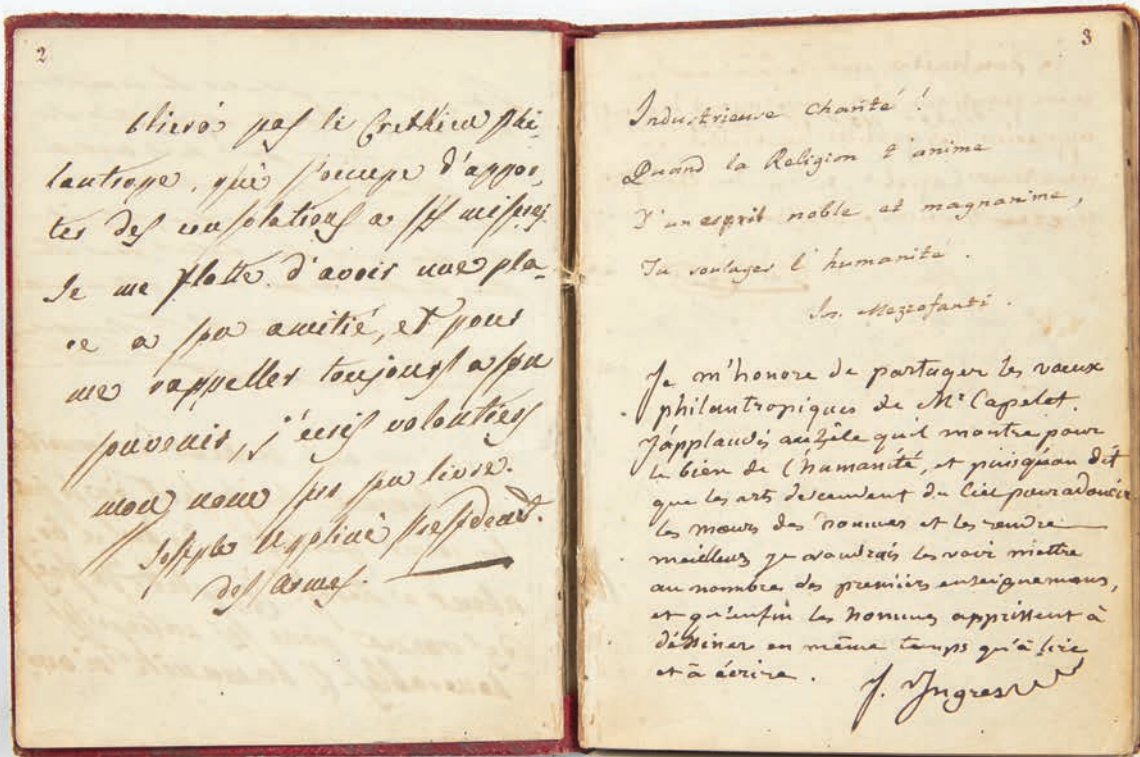 2
bliera pas le Crethien phi-
lantrope, qui s'occupe d'appor-
ter des consolations a ses
Je me flatte d'avoir une pla-
ce a son amitié, et pour
me rappeller toujours a son
souvenir, j'ecris volontiers
mon nom sur son livre.
Joseph
des armes.
3
Industrieuse Charité !
Quand la Religion t'anime
D'un esprit noble et magnanime,
Tu soulages l'humanité.
Jos. Mezzofanti.
Je m'honore de partager les vœux
philantropiques de Mr Capelet.
J'applaudis au zèle qu'il montre pour
le bien de l'humanité, et puisqu'on dit
que les arts descendent du Ciel pour adoucir
les mœurs des hommes et les rendre
meilleurs je voudrais les voir mettre
au nombre des premiers enseignemens,
et qu'enfin les hommes apprissent à
dessiner en même temps qu'à lire
et à écrire.
J. Ingres